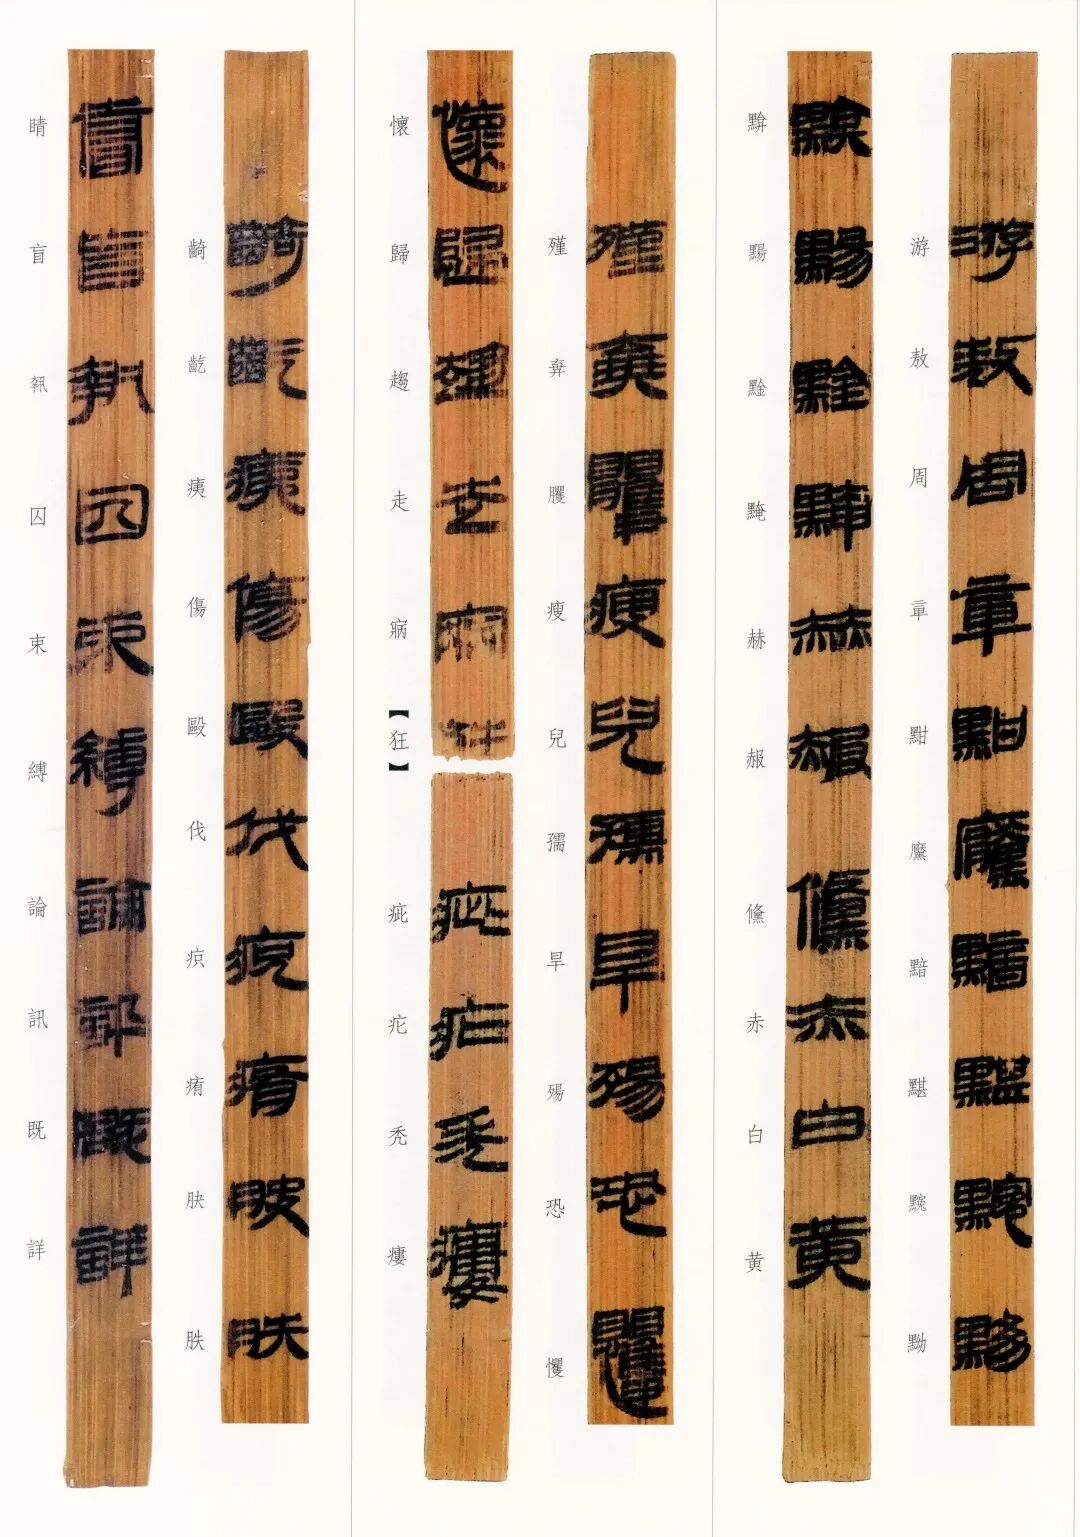 游敖周章黚黶黯黮黦黝
黭黤赫赧儵赤白黄
殣棄臞瘦兒孺旱殤恐懼
懷歸趨走病【狂】疵疕禿瘻
齮齕痍傷毆伐疻痏胅
睛盲執囚束縛論訊既詳